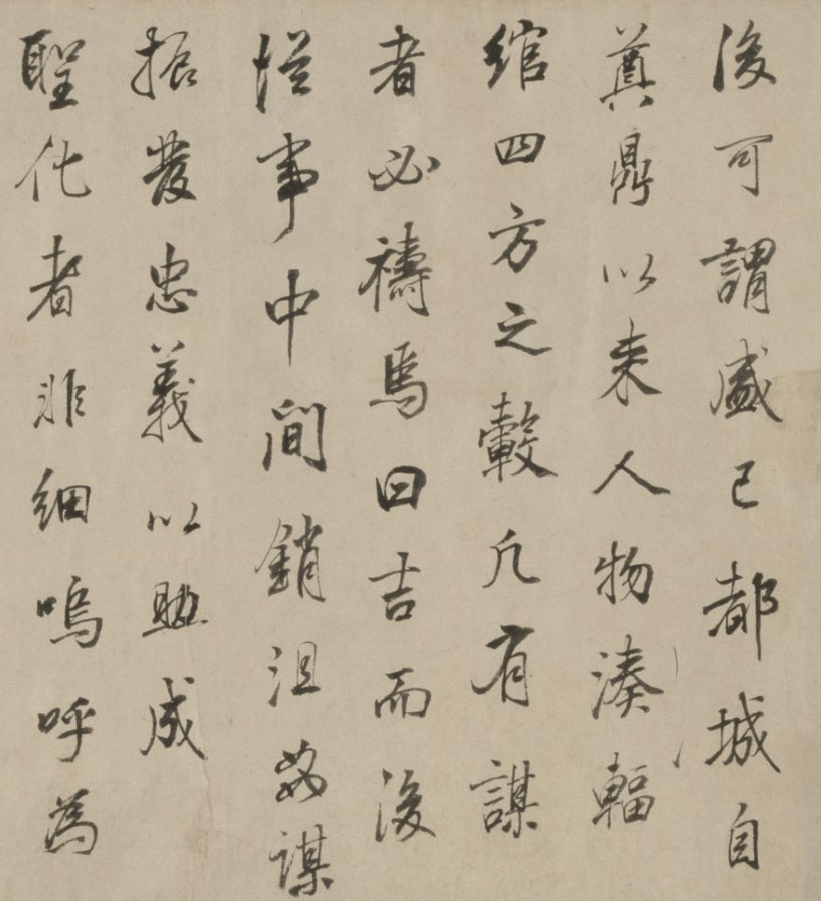 後可謂盛已都城自
奠鼎以来人物湊輻
綰四方之轂凡有謀
者必禱焉曰吉而後
從事中間銷沮姦謀
振發忠義以助成
聖化者非細嗚呼為